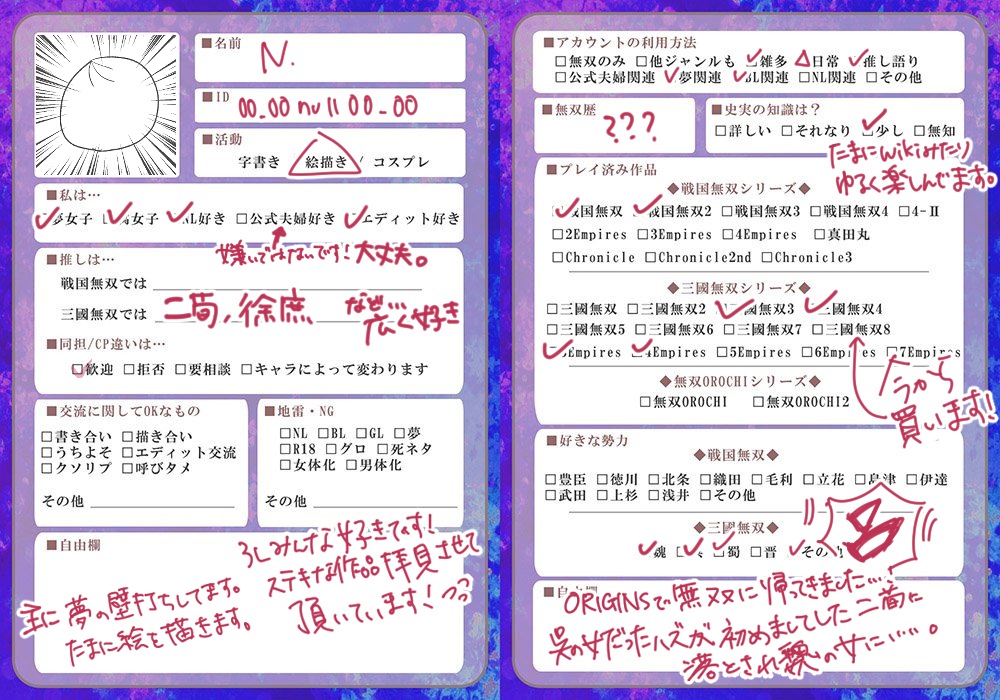 ■名前
N.
■ID
00_00nv1100_00
■活動
字書き / 絵描き / コスプレ
■私は…
夢女子 □腐女子 NL好き □公式夫婦好き □エディット好き
嫌いではないです!大丈夫。
■推しは…
戦国無双では
三國無双では 二荀、徐庶 など… 広く好き
■同担/CP違いは…
□歓迎 □拒否 □要相談 □キャラによって変わります
■交流に関してOKなもの
□書き合い □描き合い
□うちよそ □エディット交流
□クソリプ □呼びタメ
その他
■地雷・NG
□NL □BL □GL □夢
□R18 □グロ □死ネタ
□女体化 □男体化
その他
■自由欄
主に夢の壁打ちしてます。
たまに絵を描きます。
みんな好きです!
ステキな作品拝見させて
頂いています!
■アカウントの利用方法
□無双のみ □他ジャンルも □雑多 △日常 □推し語り
□公式夫婦関連 □夢関連 □BL関連 □NL関連 □その他
■無双歴
???
■史実の知識は?
□詳しい □それなり □少し □無知
たまにwikiみたり
ゆるく楽しんでます。
■プレイ済み作品
◆戦国無双シリーズ◆
□戦国無双 □戦国無双2 □戦国無双3 □戦国無双4 □4-Ⅱ
□2Empires □3Empires □4Empires □真田丸
□Chronicle □Chronicle2nd □Chronicle3
◆三國無双シリーズ◆
□三國無双 □三國無双2 □三國無双3 □三國無双4
□三國無双5 □三國無双6 □三國無双7 □三國無双8
□3Empires □4Empires □5Empires □6Empires □7Empires
今から
買います!
◆無双OROCHIシリーズ◆
□無双OROCHI □無双OROCHI2
■好きな勢力
◆戦国無双◆
□豊臣 □徳川 □北条 □織田 □毛利 □立花 □島津 □伊達
□武田 □上杉 □浅井 □その他
◆三國無双◆
□魏 □呉 □蜀 □晋 □その他 呂
■自由欄
ORIGINSで無双に帰ってきました…!
呉の女だったハズが、初めましてした二荀に
落とされ魏の女に……。